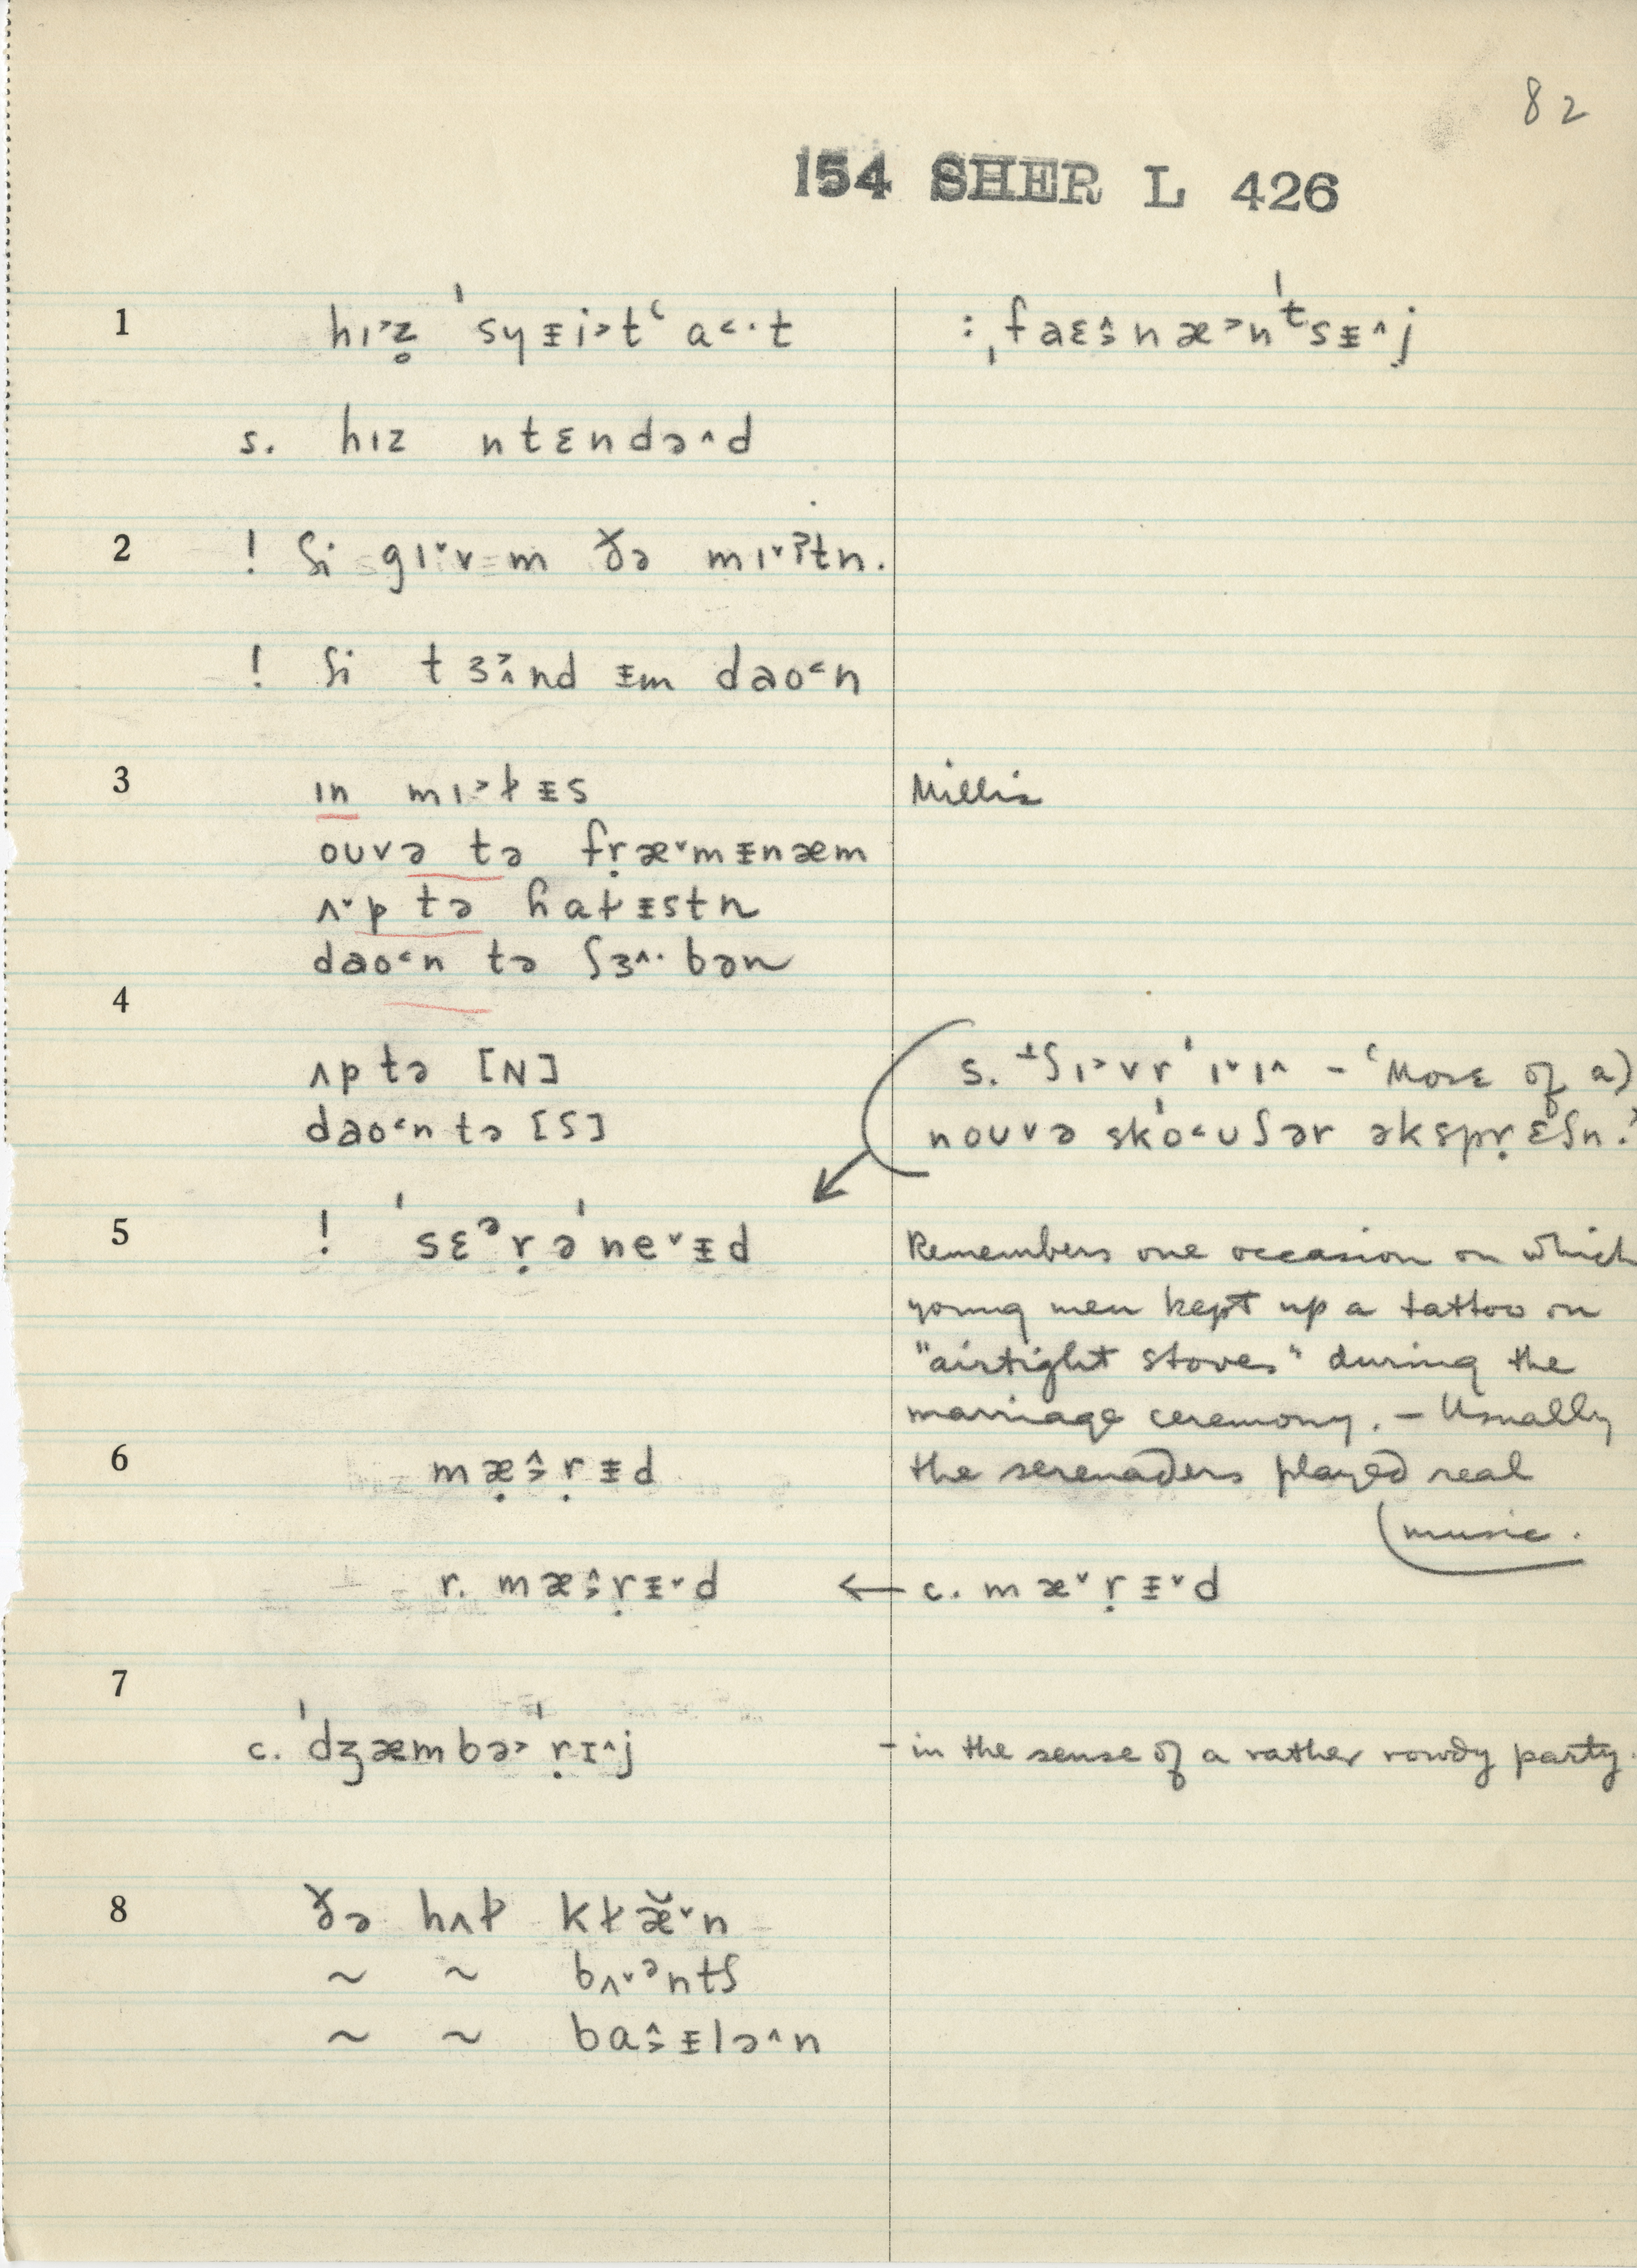 82
154 SHER L 426
1 hɪ˃z̥ ˈsyᵻi˃tʿ a˂·t :ˌfaɛ˔˃næ˃nᵗsᵻ^j
s. hɪz ntɛndə^d
2 ! ʃi gɪ˅vᵻm ðə mɪ˅ʔtn.
! ʃi tɜ˃^nd ᵻm dao˂n
3 ɪn mɪ˃ɫᵻs Millis
oʊvə tə fṛæ˅mᵻnæm
ʌ˅p tə haɫᵻstn
dao˂n tə ʃɜ^·bən
4
ʌp tə [N]
dao˂n tə [S]
s. ʃɪ˃vrˈɪ˅ɪ^ – ‘More of a)
noʊvə skoˈ˂ʊʃər əkspṛɛʃn.’
5 ! ˈsɛᵊṛəˈne˅ᵻd Remembers one occasion on which
young men kept up a tattoo on
"airtight stoves" during the
marriage ceremony. – Usually
6 mæ̣^˃ṛᵻd the serenaders played real
music.
r. mæ^˃ṛᵻ˅d ← c. mæ˅ṛᵻ˅d
7
c. ˈdʒæmbə˃ˈṛɪ^j – in the sense of a rather rowdy party.
8 ðə hʌɫ kɫæ̆˅n
~ ~ bʌ˅ᵊntʃ
~ ~ ba^˃ᵻlə^n